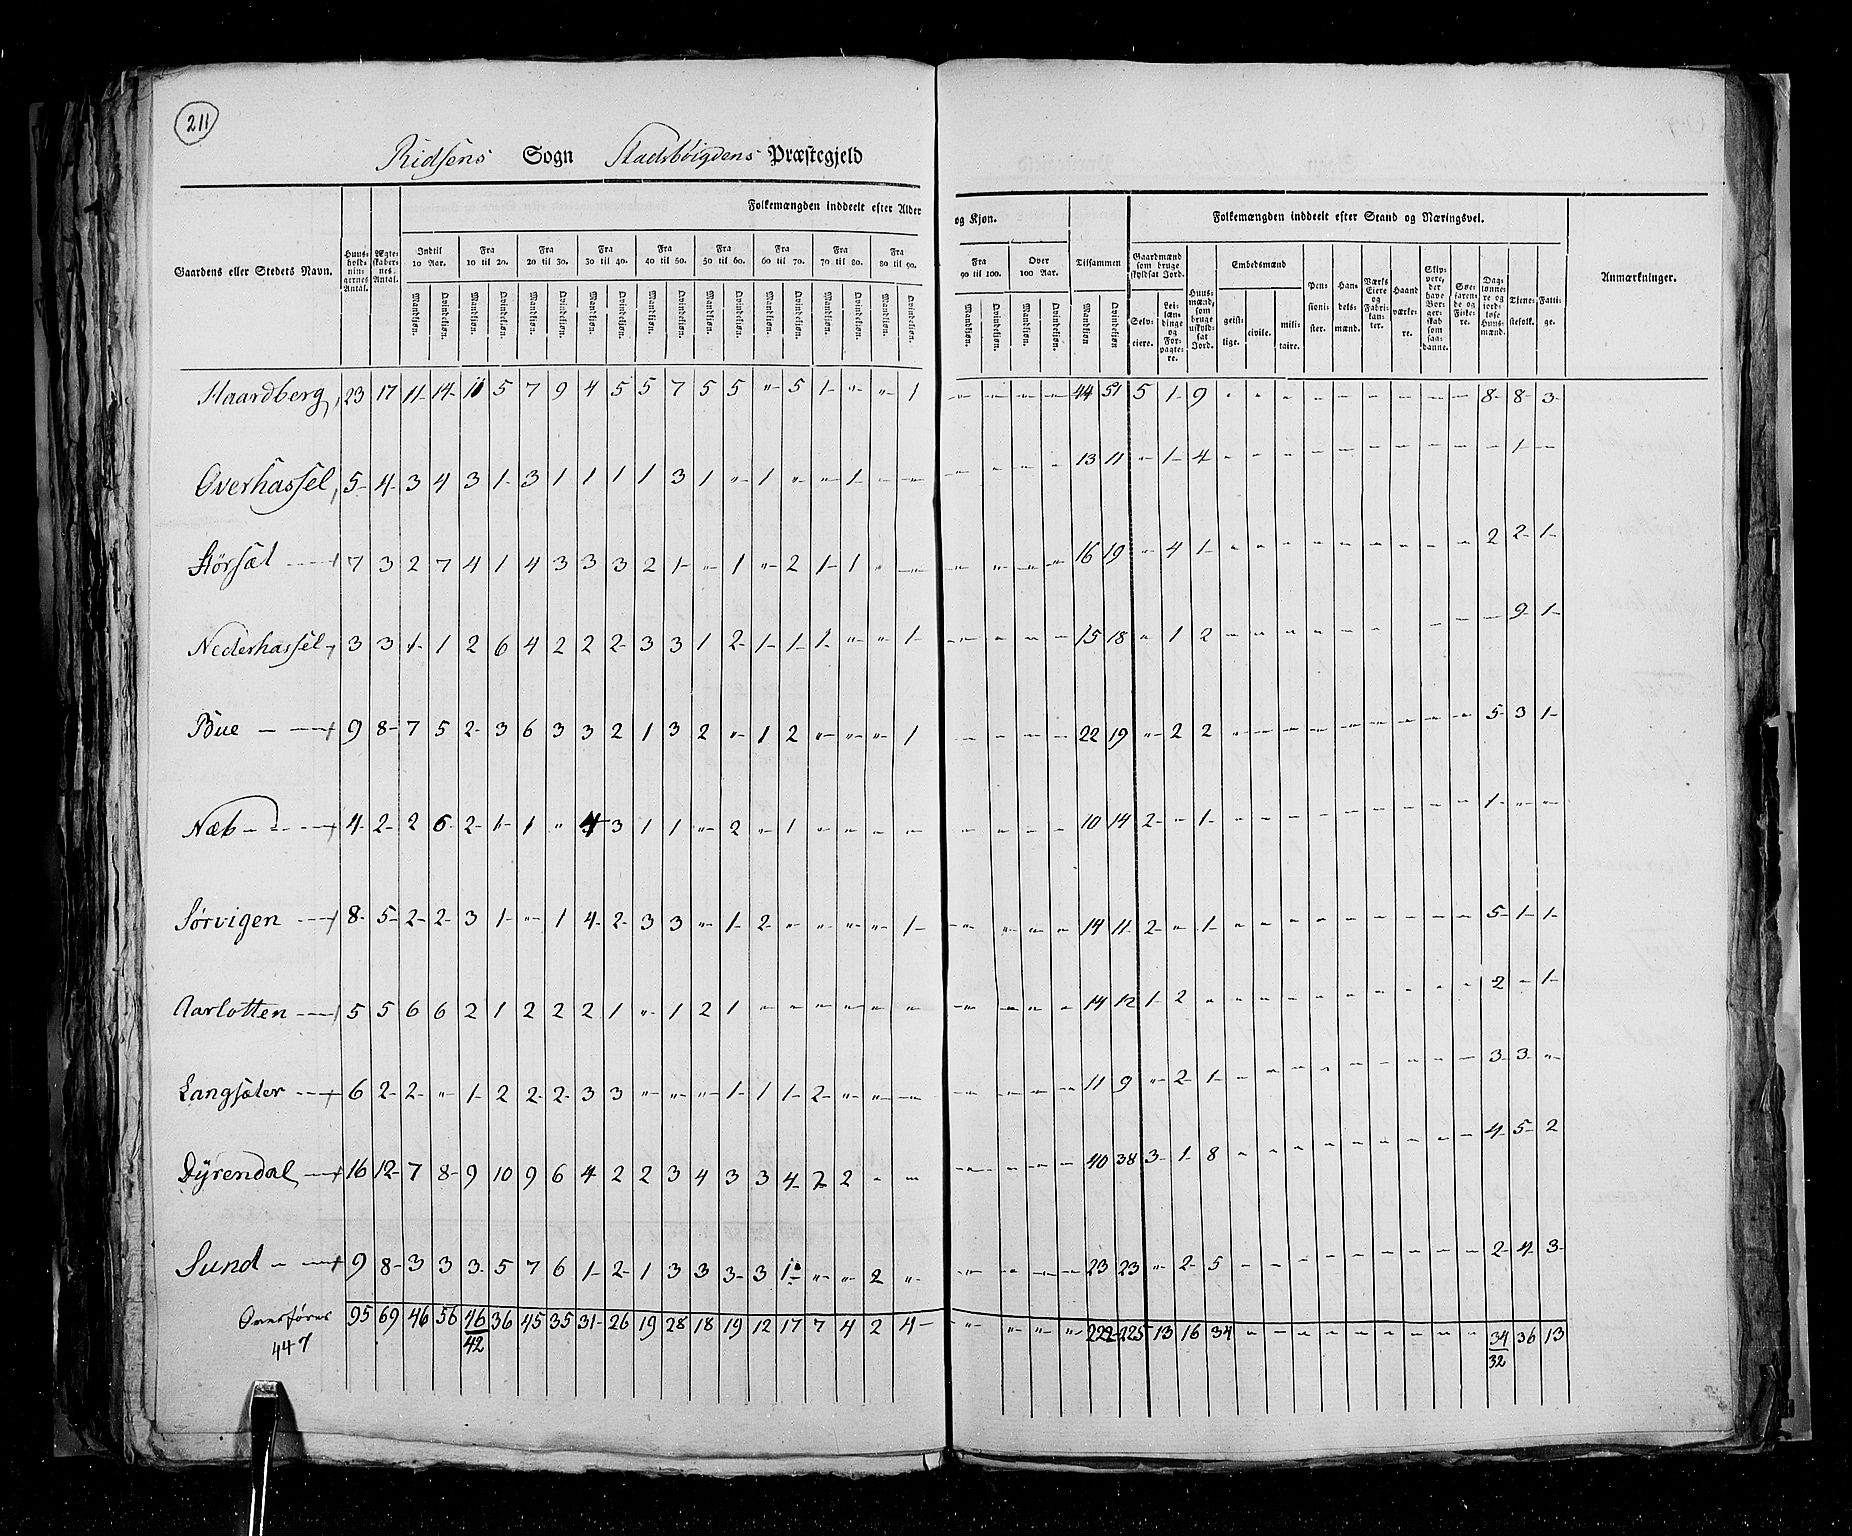 211
Ridsens Sogn Stadsbøigdens Præstegjeld
Folkemængden inddeelt efter Alder og Kjøn. Tilsammen Folkemængden inddeelt efter Stand og Næringsvei.
Gaardens eller Stedets Navn. Huus-hold-nin-gernes Antal. Ægte-skaber-nes Antal. Indtil 10 Aar. Fra 10 til 20. Fra 20 til 30. Fra 30 til 40. Fra 40 til 50. Fra 50 til 60. Fra 60 til 70. Fra 70 til 80. Fra 80 til 90. Fra 90 til 100. Over 100 Aar. Gaardmænd som bruge skyldsat Jord. Huus-mænd, som bruge uskyld-sat Jord. Embedsmænd Pen-sioni-ster. Han-dels-mænd. Værks Eiere og Fabri-kan-ter. Haand værke-re. Skip-pere, der have Bor-ger-skab som saa-danne. Søe-faren-de og Fiske-re. Dag-lønne-re og jord-løse Huus-mænd. Tiene-stefolk. Fatti-ge. Anmærkninger.
Mandkjøn. Qvindekjøn. Mandkjøn. Qvindekjøn. Mandkjøn. Qvindekjøn. Mandkjøn. Qvindekjøn. Mandkjøn. Qvindekjøn. Mandkjøn. Qvindekjøn. Mandkjøn. Qvindekjøn. Mandkjøn. Qvindekjøn. Mandkjøn. Qvindekjøn. Mandkjøn. Qvindekjøn. Mandkjøn. Qvindekjøn. Mandkjøn Qvindekjøn. Selv-eiere. Lei-læn-dinge og For-pagte-re. geist-lige. civile. mili-taire.
Haardberg, 23 17 11 14 11 5 7 9 4 5 5 7 5 5 " 5 1 " " 1 " " " " 44 51 5 1 9 " " " " " " " " " 8 8 3
Overhassel, 5 4 3 4 3 1 3 1 1 1 1 3 1 " 1 " " 1 " " " " " " 13 11 " 1 4 " " " " " " " " " " 1 "
Størsæt 7 3 2 7 4 1 4 3 3 3 2 1 " 1 " 2 1 1 " " " " " " 16 19 " 4 1 " " " " " " " " " 2 2 1
Nederhassel 3 3 1 1 2 6 4 2 2 2 3 3 1 2 1 1 1 " " 1 " " " " 15 18 " 1 2 " " " " " " " " " 9 1
Bue 9 8 7 5 2 3 6 3 3 2 1 3 2 " 1 2 " " " 1 " " " " 22 19 " 2 2 " " " " " " " " " 5 3 1
Næb 4 2 2 6 2 1 1 " 4 3 1 1 " 2 " 1 " " " " " " " " 10 14 2 " 1 " " " " " " " " " 1 " "
Sørvigen 8 5 2 2 3 1 " 1 4 2 3 3 " 1 2 " " " " 1 " " " " 14 11 2 " 1 " " " " " " " " " 5 1 1
Aarlotten 5 5 6 6 2 1 2 2 2 1 " 1 2 1 " " " " " " " " " " 14 12 1 2 " " " " " " " " " " 2 " 1
Langsæter 6 2 2 " 1 2 2 2 3 3 " " " 1 1 1 2 " " " " " " " 11 9 " 2 1 " " " " " " " " " 3 3 "
Dÿrendal 16 12 7 8 9 10 9 6 4 2 2 3 4 3 3 4 2 2 " " " " " " 40 38 3 1 8 " " " " " " " " " 4 5 2
Sund 9 8 3 3 3 5 7 6 1 2 1 3 3 3 3 1 " " 2 " " " " " 23 23 " 2 5 " " " " " " " " " 2 4 3
Overføres 95 69 46 56 46 36 45 35 31 26 19 28 18 19 12 17 7 4 2 4 " " " " 222 225 13 16 34 " " " " " " " " " 34 36 13
447 42 32